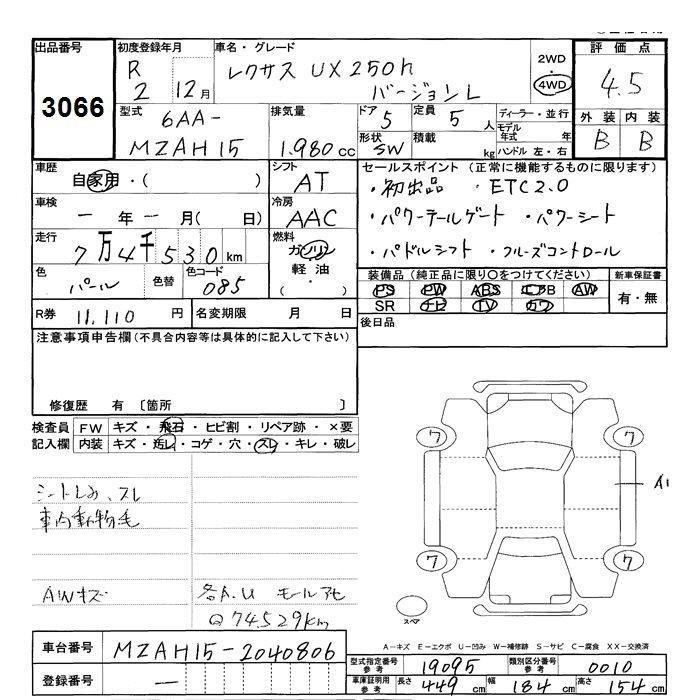 出品番号
3066
初度登録年月
R 2 12月
車名・グレード
レクサス UX250h
バージョンL
2WD
4WD
評価点
4.5
型式
6AA-
MZAH15
排気量
1.980cc
ドア
5
定員
5人
形状
SW
積載
kg
ディーラー・並行
モデル年式 年
ハンドル 左・右
外装 内装
B B
車歴
自家用・( )
シフト
AT
車検
一年一月( 日)
冷房
AAC
走行
7万4千530km
燃料
ガソリン
軽油
・( )
色
パール
色替
色コード
085
セールスポイント (正常に機能するものに限ります)
・初出品 ・ETC2.0
・パワーテールゲート ・パワーシート
・パドルシフト ・クルーズコントロール
装備品(純正品に限り○をつけてください)
PS PW ABS エアB AW
SR ナビ TV カワ
新車保証書
有・無
R券 11,110円
名変期限 月 日
後日品
注意事項申告欄(不具合内容等は具体的に記入して下さい)
修復歴 有〔箇所 〕
検査員記入欄
FW キズ・飛石・ヒビ割・リペア跡・×要
内装 キズ・汚レ・コゲ・穴・スレ・キレ・破レ
シートしみ、スレ
車内動物毛
AWキズ
各A.U モールアセ
Q 74529km
ワ ワ
A1
ワ ワ
スペア
A-キズ E-エクボ U-凹み W-補修跡 S-サビ C-腐食 XX-交換済
車台番号
MZAH15-2040806
登録番号
—
型式指定番号 参考
19095
類別区分番号 参考
0010
車庫証明用 参考
長さ 449cm
幅 184cm
高さ 154cm